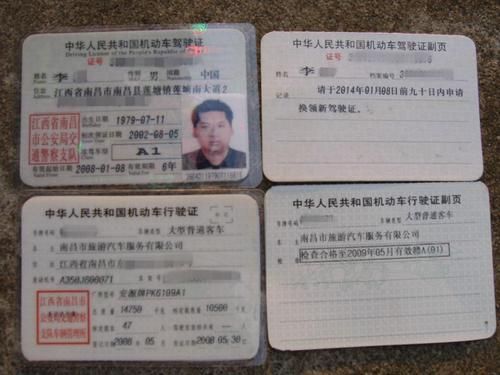 中华人民共和国机动车驾驶证
Driving License of the People's Republic of China
证号
姓名 李 性别 男 国籍 中国
住址 江西省南昌市南昌县莲塘镇莲塘南大道2
江西省南昌
市公安局交
通警察支队
出生日期 1979-07-11
初次领证日期 2002-08-05
准驾车型 A1
有效起始日期 2008-01-08 有效期限 6年
中华人民共和国机动车驾驶证副页
证号
姓名 李 档案编号
记录 请于2014年01月08日前九十日内申请
换领新驾驶证。
中华人民共和国机动车行驶证
号牌号码 车辆类型 大型普通客车
南昌市旅游汽车服务有限公司
江西省南昌市东
A350J800071
江西省南昌市
公安局交通警察
支队车辆管理所
厂牌型号 安源牌PK6109A1
总质量 14750 千克 10500 千克
47 人
登记日期 2008 年 05 月 2008 05 30 日
中华人民共和国机动车行驶证副页
号牌号码 车辆类型 大型普通客车
南昌市旅游汽车服务有限公司
检查合格至2009年05月有效赣A(01)